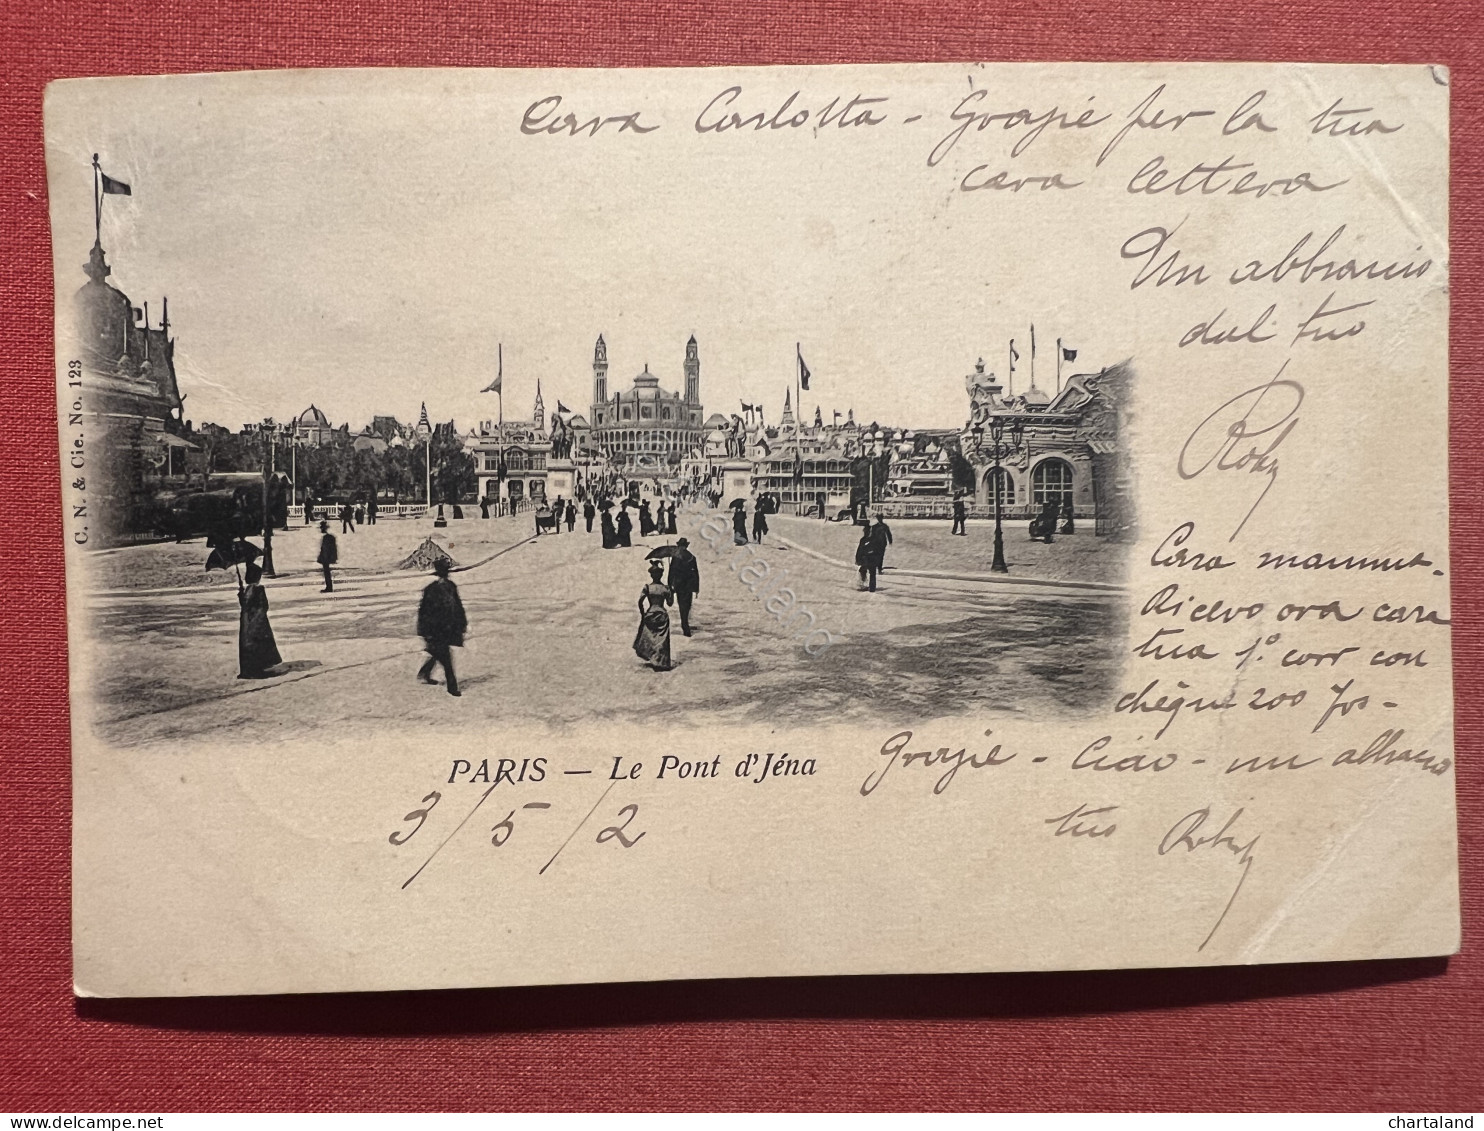 Cara Carlotta - Grazie per la tua
cara lettera
Un abbraccio
dal tuo
Roby
Cara mammut-
Ricevo ora cara
tua 1º corr con
chèque 200 frs-
Grazie - Ciao - un abbraccio
tuo Roby
C. N. & Cie. No. 123
PARIS — Le Pont d'Jéna
3/5/2
chartaland